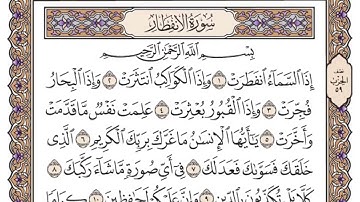 سُورَةُ الانفِطَارِ
بِسْمِ اللَّهِ الرَّحْمَٰنِ الرَّحِيمِ
إِذَا السَّمَاءُ انفَطَرَتْ ١ وَإِذَا الْكَوَاكِبُ انتَثَرَتْ ٢ وَإِذَا الْبِحَارُ
فُجِّرَتْ ٣ وَإِذَا الْقُبُورُ بُعْثِرَتْ ٤ عَلِمَتْ نَفْسٌ مَّا قَدَّمَتْ
وَأَخَّرَتْ ٥ يَا أَيُّهَا الْإِنسَانُ مَا غَرَّكَ بِرَبِّكَ الْكَرِيمِ ٦ الَّذِي
خَلَقَكَ فَسَوَّاكَ فَعَدَلَكَ ٧ فِي أَيِّ صُورَةٍ مَّا شَاءَ رَكَّبَكَ ٨
كَلَّا بَلْ تُكَذِّبُونَ بِالدِّينِ ٩ وَإِنَّ عَلَيْكُمْ لَحَافِظِينَ ١٠ كِرَامًا
نصف
الحزب
٥٩